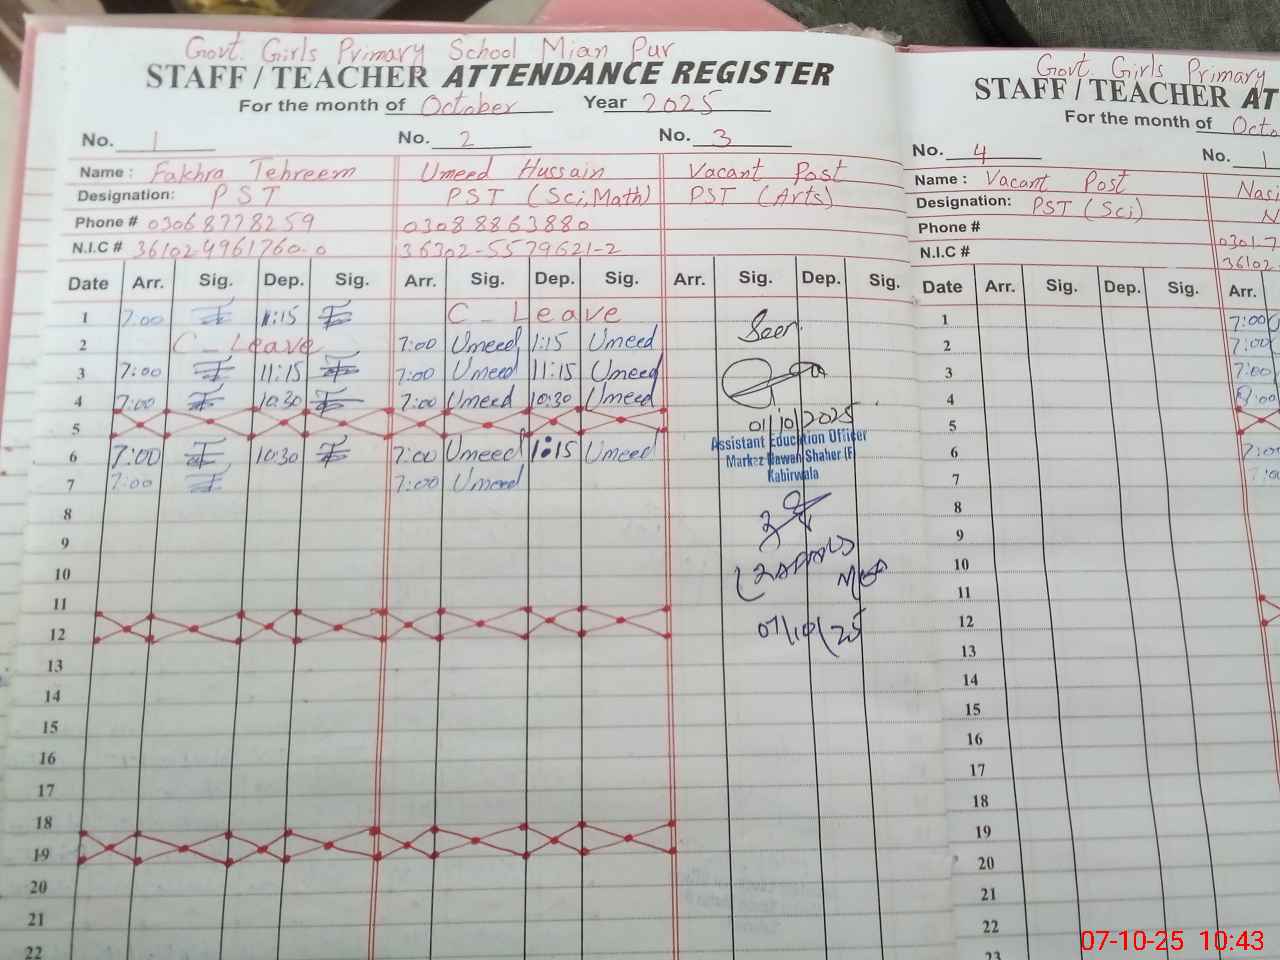 Govt. Girls Primary School Mian Pur
STAFF / TEACHER ATTENDANCE REGISTER
For the month of October Year 2025
No. 1 No. 2 No. 3
Name : Fakhra Tehreem Umeed Hussain Vacant Post
Designation: PST PST (Sci, Math) PST (Arts)
Phone # 03068778259 03088863880
N.I.C # 36102-4961760-0 36302-5579621-2
Date Arr. Sig. Dep. Sig. Arr. Sig. Dep. Sig. Arr. Sig. Dep. Sig.
1 7:00 1:15 C_Leave
2 C_Leave 7:00 Umeed 1:15 Umeed Seen
3 7:00 11:15 7:00 Umeed 11:15 Umeed
4 7:00 10:30 7:00 Umeed 10:30 Umeed
5 01/10/2025
Assistant Education Officer
Markaz Nawan Shaher (F)
Kabirwala
6 7:00 10:30 7:00 Umeed 1:15 Umeed
7 7:00 7:00 Umeed
8
9
10
11
12 07/10/25
13
14
15
16
17
18
19
20
21
22
Govt. Girls Primary
STAFF / TEACHER AT
For the month of Octo
No. 4 No. 1
Name : Vacant Post Nasi
Designation: PST (Sci) N
Phone # 0301-7
N.I.C # 36102-
Date Arr. Sig. Dep. Sig. Arr.
1 7:00
2 7:00
3 7:00
4 8:00
5
6 7:00
7 7:00
8
9
10
11
12
13
14
15
16
17
18
19
20
21
22
23
07-10-25 10:43